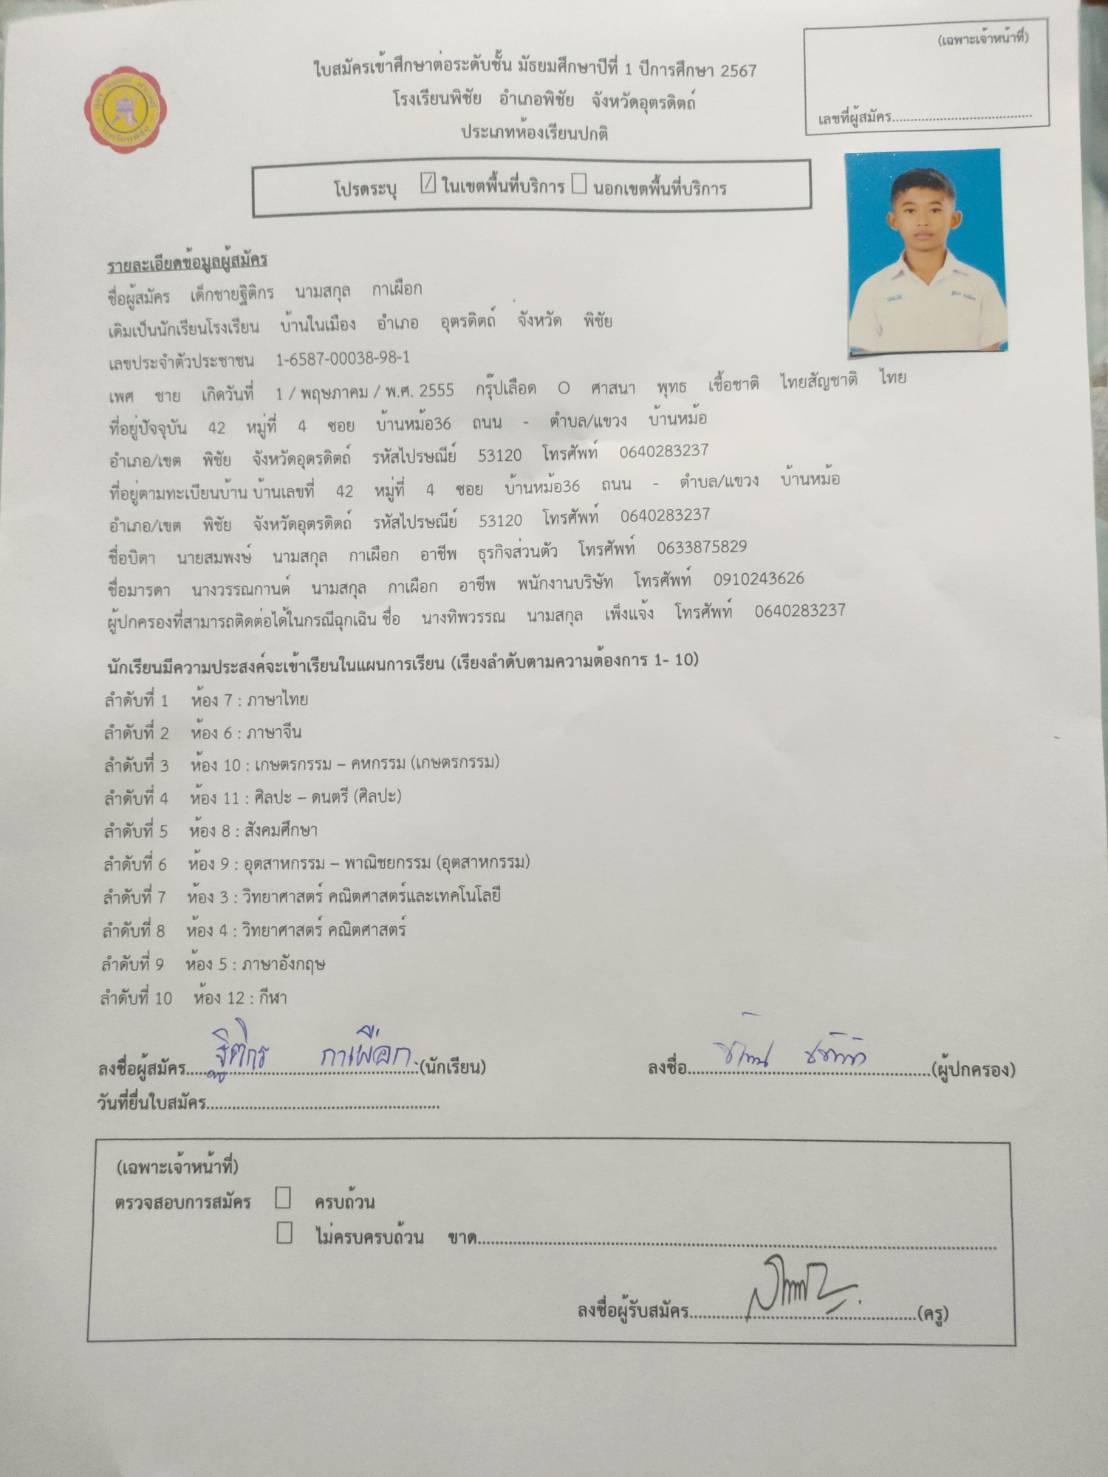 (เฉพาะเจ้าหน้าที่)
เลขที่ผู้สมัคร....................................
ใบสมัครเข้าศึกษาต่อระดับชั้น มัธยมศึกษาปีที่ 1 ปีการศึกษา 2567
โรงเรียนพิชัย อำเภอพิชัย จังหวัดอุตรดิตถ์
ประเภทห้องเรียนปกติ
โปรดระบุ ☑ ในเขตพื้นที่บริการ ☐ นอกเขตพื้นที่บริการ
รายละเอียดข้อมูลผู้สมัคร
ชื่อผู้สมัคร เด็กชายฐิติกร นามสกุล กาเผือก
เดิมเป็นนักเรียนโรงเรียน บ้านในเมือง อำเภอ อุตรดิตถ์ จังหวัด พิชัย
เลขประจำตัวประชาชน 1-6587-00038-98-1
เพศ ชาย เกิดวันที่ 1 / พฤษภาคม / พ.ศ. 2555 กรุ๊ปเลือด O ศาสนา พุทธ เชื้อชาติ ไทยสัญชาติ ไทย
ที่อยู่ปัจจุบัน 42 หมู่ที่ 4 ซอย บ้านหม้อ36 ถนน - ตำบล/แขวง บ้านหม้อ
อำเภอ/เขต พิชัย จังหวัดอุตรดิตถ์ รหัสไปรษณีย์ 53120 โทรศัพท์ 0640283237
ที่อยู่ตามทะเบียนบ้าน บ้านเลขที่ 42 หมู่ที่ 4 ซอย บ้านหม้อ36 ถนน - ตำบล/แขวง บ้านหม้อ
อำเภอ/เขต พิชัย จังหวัดอุตรดิตถ์ รหัสไปรษณีย์ 53120 โทรศัพท์ 0640283237
ชื่อบิดา นายสมพงษ์ นามสกุล กาเผือก อาชีพ ธุรกิจส่วนตัว โทรศัพท์ 0633875829
ชื่อมารดา นางวรรณกานต์ นามสกุล กาเผือก อาชีพ พนักงานบริษัท โทรศัพท์ 0910243626
ผู้ปกครองที่สามารถติดต่อได้ในกรณีฉุกเฉิน ชื่อ นางทิพวรรณ นามสกุล เพ็งแจ้ง โทรศัพท์ 0640283237
นักเรียนมีความประสงค์จะเข้าเรียนในแผนการเรียน (เรียงลำดับตามความต้องการ 1- 10)
ลำดับที่ 1 ห้อง 7 : ภาษาไทย
ลำดับที่ 2 ห้อง 6 : ภาษาจีน
ลำดับที่ 3 ห้อง 10 : เกษตรกรรม – คหกรรม (เกษตรกรรม)
ลำดับที่ 4 ห้อง 11 : ศิลปะ – ดนตรี (ศิลปะ)
ลำดับที่ 5 ห้อง 8 : สังคมศึกษา
ลำดับที่ 6 ห้อง 9 : อุตสาหกรรม – พาณิชยกรรม (อุตสาหกรรม)
ลำดับที่ 7 ห้อง 3 : วิทยาศาสตร์ คณิตศาสตร์และเทคโนโลยี
ลำดับที่ 8 ห้อง 4 : วิทยาศาสตร์ คณิตศาสตร์
ลำดับที่ 9 ห้อง 5 : ภาษาอังกฤษ
ลำดับที่ 10 ห้อง 12 : กีฬา
ลงชื่อผู้สมัคร ฐิติกร กาเผือก (นักเรียน) ลงชื่อ............(ผู้ปกครอง)
วันที่ยื่นใบสมัคร.............................................
(เฉพาะเจ้าหน้าที่)
ตรวจสอบการสมัคร ☐ ครบถ้วน
☐ ไม่ครบครบถ้วน ขาด..........................................................
ลงชื่อผู้รับสมัคร............(ครู)